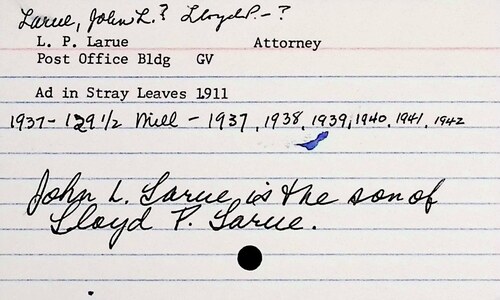 Larue, John L.? Lloyd P.-?
L. P. Larue Attorney
Post Office Bldg GV
Ad in Stray Leaves 1911
1937- 129 1/2 Mill - 1937, 1938, 1939, 1940, 1941, 1942
John L. Larue is the son of
Lloyd P. Larue.